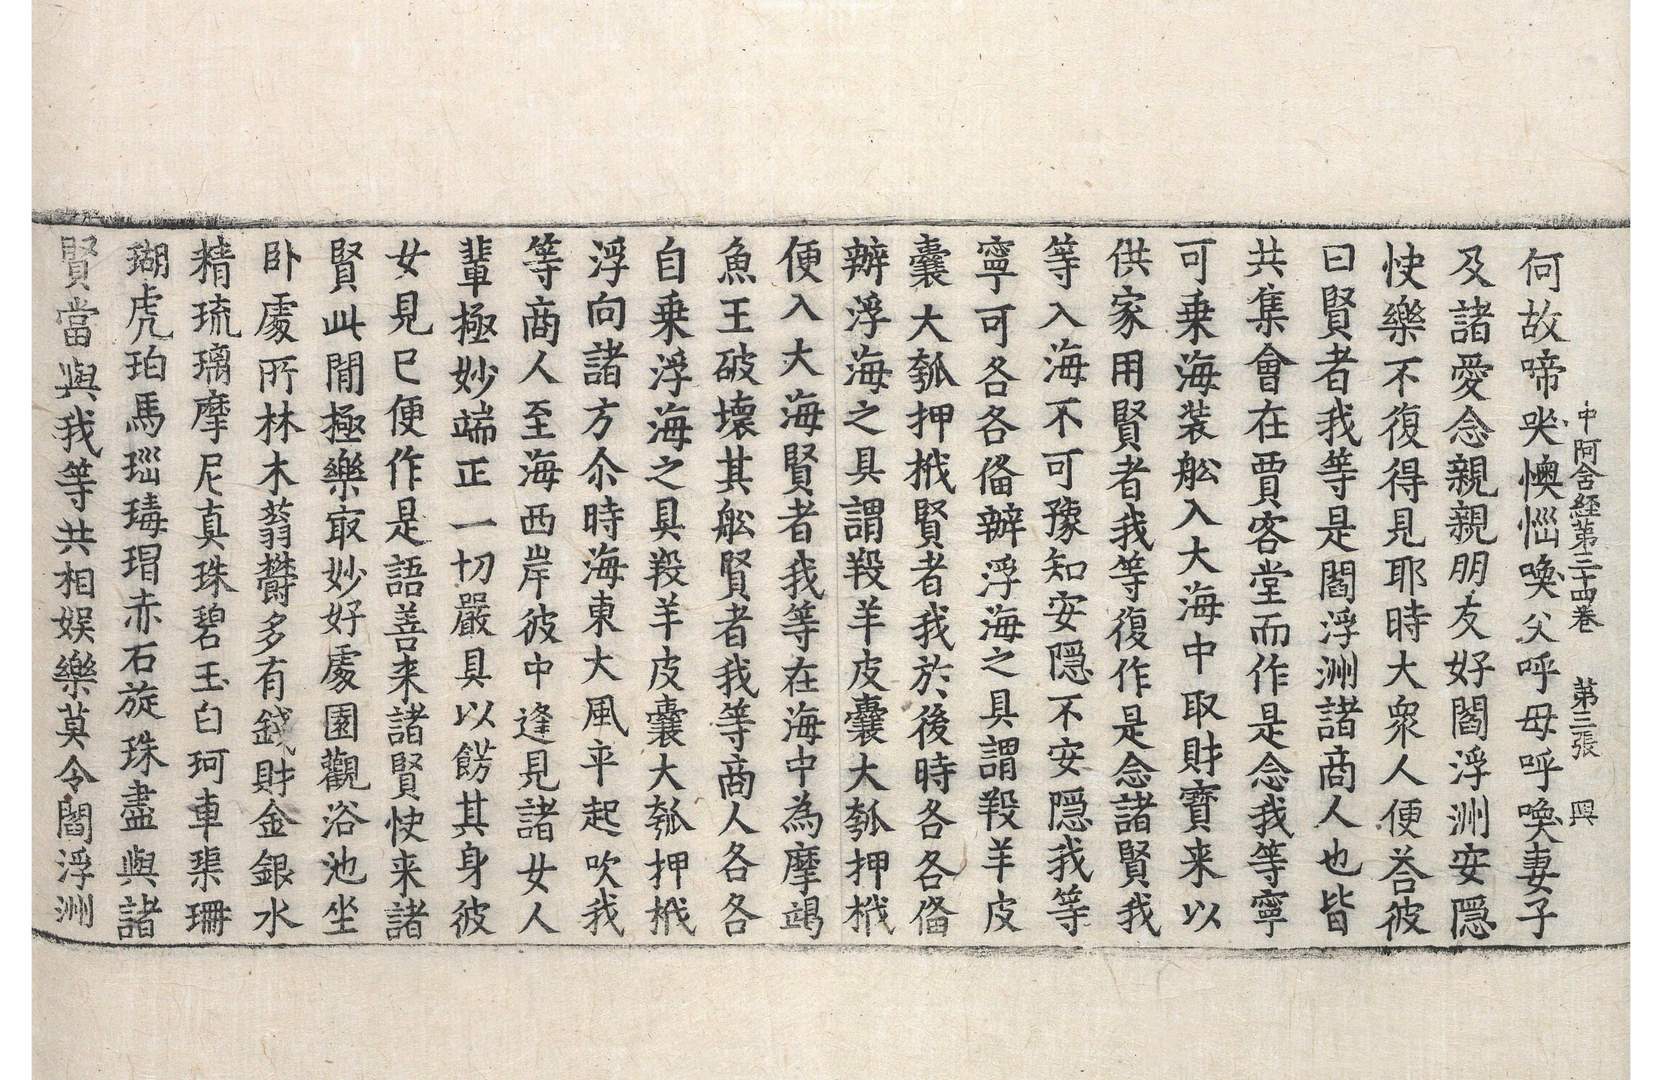 中阿含經第三十四卷 第三張 興
何故啼哭懊惱喚父呼母呼喚妻子
及諸愛念親親朋友好閻浮洲安隱
快樂不復得見耶時大衆人便荅彼
曰賢者我等是閻浮洲諸商人也皆
共集會在賈客堂而作是念我等寧
可乗海装舩入大海中取財寶来以
供家用賢者我等復作是念諸賢我
等入海不可豫知安隱不安隱我等
寧可各各俻辦浮海之具謂羖羊皮
囊大瓠押栰賢者我於後時各各俻
辦浮海之具謂羖羊皮囊大瓠押栰
便入大海賢者我等在海中為摩竭
魚王破壊其舩賢者我等商人各各
自乗浮海之具羖羊皮囊大瓠押栰
浮向諸方尒時海東大風卒起吹我
等商人至海西岸彼中逢見諸女人
輩極妙端正一切嚴具以餝其身彼
女見已便作是語善来諸賢快来諸
賢此閒極樂㝡妙好處園觀浴池坐
卧處所林木蓊欝多有錢財金銀水
精琉璃摩尼真珠碧玉白珂車渠珊
瑚虎珀馬瑙瑇瑁赤石旋珠盡與諸
賢當與我等共相娱樂莫令閻浮洲